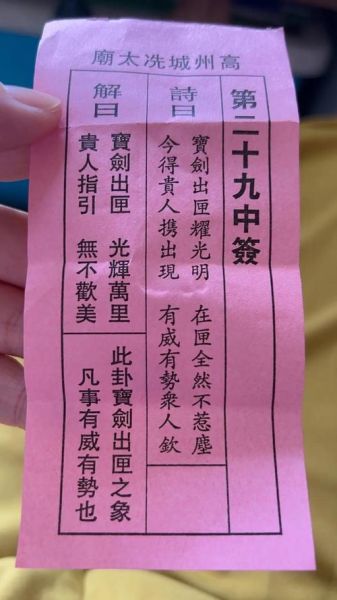 高州城冼太廟
第二十九中簽
詩曰
寶劍出匣耀光明 在匣全然不惹塵
今得貴人携出現 有威有勢衆人欽
解曰
寶劍出匣 光輝萬里
貴人指引 無不歡美
此卦寶劍出匣之象
凡事有威有勢也